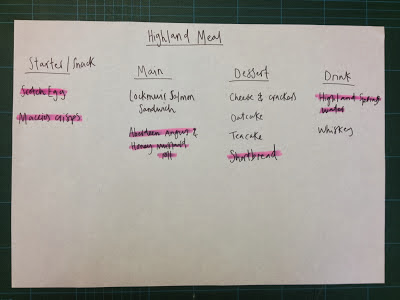 Highland Meal
Starter/Snack
Scotch Egg
Mackies crisps
Main
Lockmuir Salmon
Sandwich
Aberdeen Angus &
Honey mustard
roll
Dessert
Cheese & crackers
Oatcake
Teacake
Shortbread
Drink
Highland Spring
Water
Whiskey